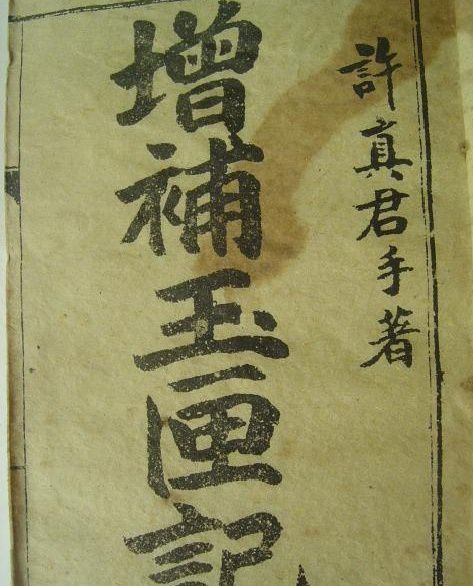 許真君手著
增補玉匣記